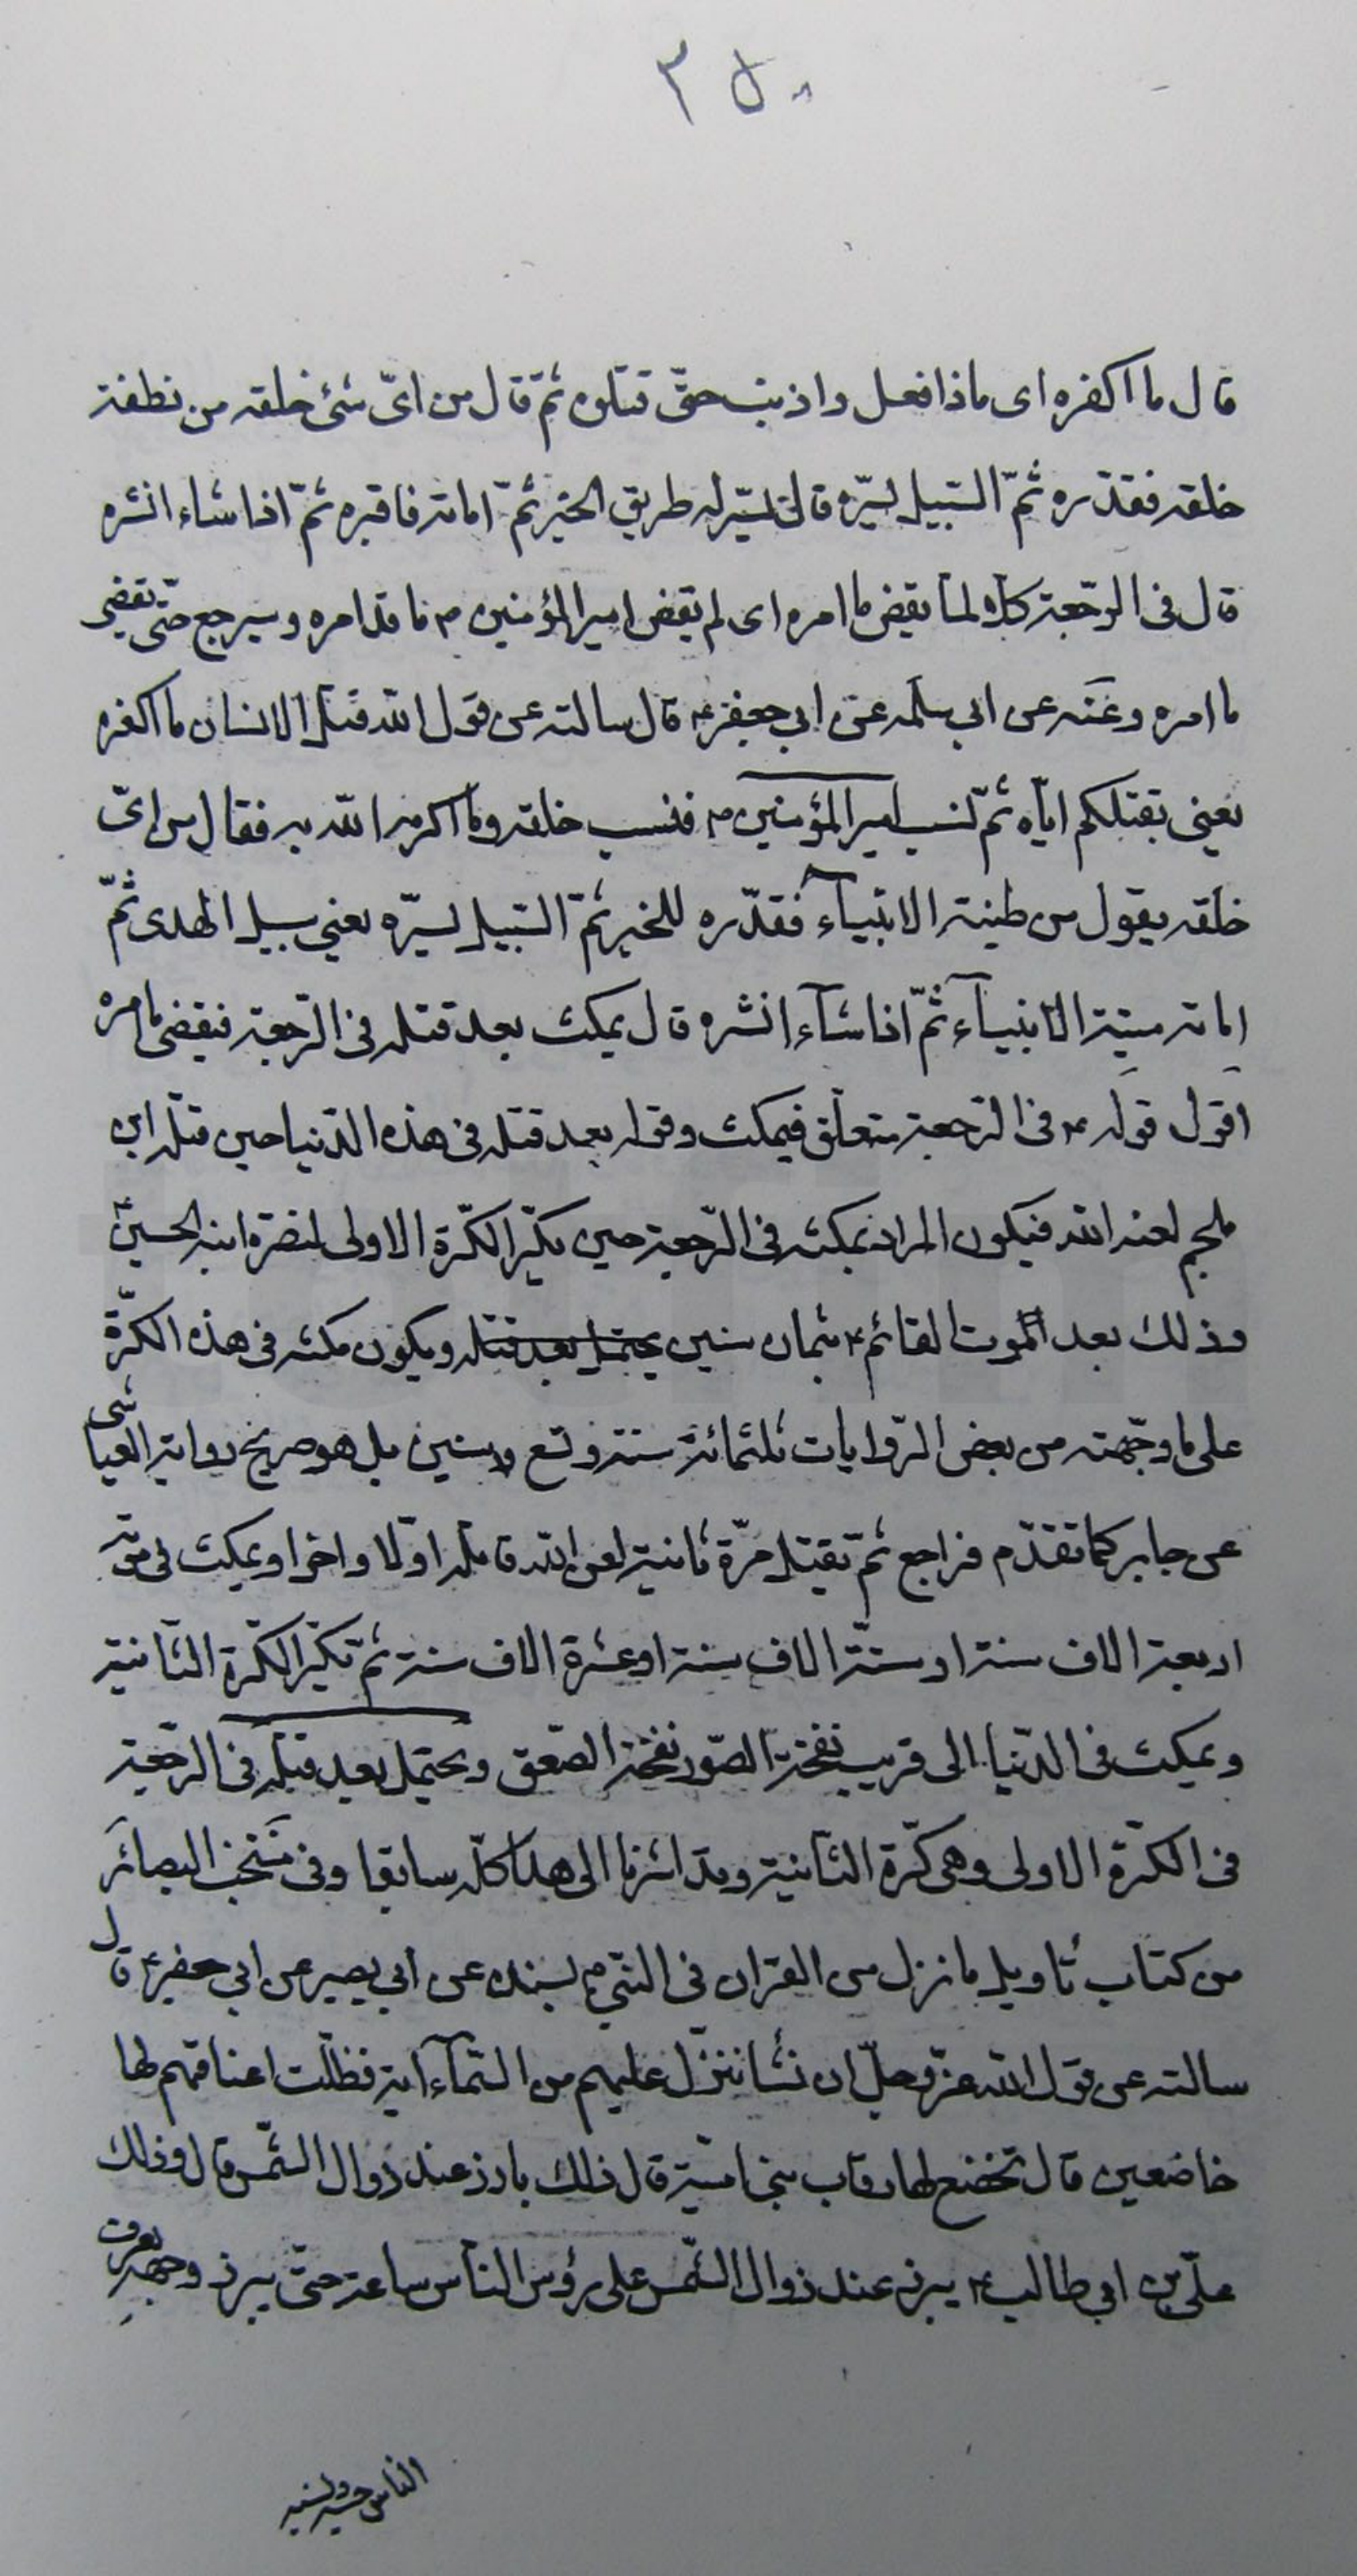 قال ما اكفره اى ماذا فعل واذنب حتّى قتلوه ثمّ قال من اىّ شئ خلقه من نطفة
خلقه فقدّره ثمّ السّبيل يسّره قال يسّر له طريق الخير ثمّ اماته فاقبره ثمّ اذا شاء انشره
قال فى الرّجعة كلّا لمّا يقض ما امره اى لم يقض امير المؤمنين ما قد امره وسيرجع حتّى يقضى
ما امره وعنه عن ابي سلمه عن ابي جعفر ع قال سالته عن قول الله قتل الانسان ما اكفره
يعنى بقتلكم ايّاه ثمّ نسب امير المؤمنين فنسب خلقه وما اكرمه الله به فقال من اىّ
خلقه يقول من طينة الانبيآء فقدّره للخير ثمّ السّبيل يسّره يعنى سبيل الهدى ثمّ
اماته ميتة الانبيآء ثمّ اذا شآء انشره قال يمكث بعد قتله فى الرّجعة فيقضى ما امره
اقول قوله ع فى الرّجعة متعلّق فيمكث وقوله بعد قتله فى هذه الدّنيا حين قتله ابن
ملجم لعنه الله فيكون المراد يمكث فى الرّجعة حين يكرّ الكرّة الاولى لنصرة ابنه الحسين ع
وذلك بعد الموت القائم ع بثمان سنين يحتمل بعد قتله ويكون مكثه فى هذه الكرّة
على ما وجّهته من بعض الرّوايات ثلثمائة سنة وتسع سنين بل هو صريح رواية العياشى
عن جابر كما تقدّم فراجع ثمّ يقتل مرّة ثانية لعن الله قاتله اوّلا واخرا ويمكث فى موته
اربعة الاف سنة او ستّة الاف سنة او عشرة الاف سنة ثمّ يكرّ الكرّة الثّانية
ويمكث فى الدّنيا الى قريب نفخة الصّور نفخة الصّعق ويحتمل بعد قتله فى الرّجعة
فى الكرّة الاولى وهى كرّة الثّانية وقد اشرنا الى هذا كلّه سابقا وفى منتخب البصائر
من كتاب تأويل ما نزل من القران فى النّبي بسنده عن ابي بصير عن ابي جعفر ع قال
سالته عن قول الله عزّ وجلّ ان نشأ ننزّل عليهم من السّمآء اية فظلّت اعناقهم لها
خاضعين قال تخضع لها رقاب بنى اميّة قال ذلك بارز عند زوال الشّمس قال وذلك
علىّ بن ابي طالب ع يبرز عند زوال الشّمس على رؤس النّاس ساعة حتّى يبرز وجهه يعرف
الناس حسبه ونسبه